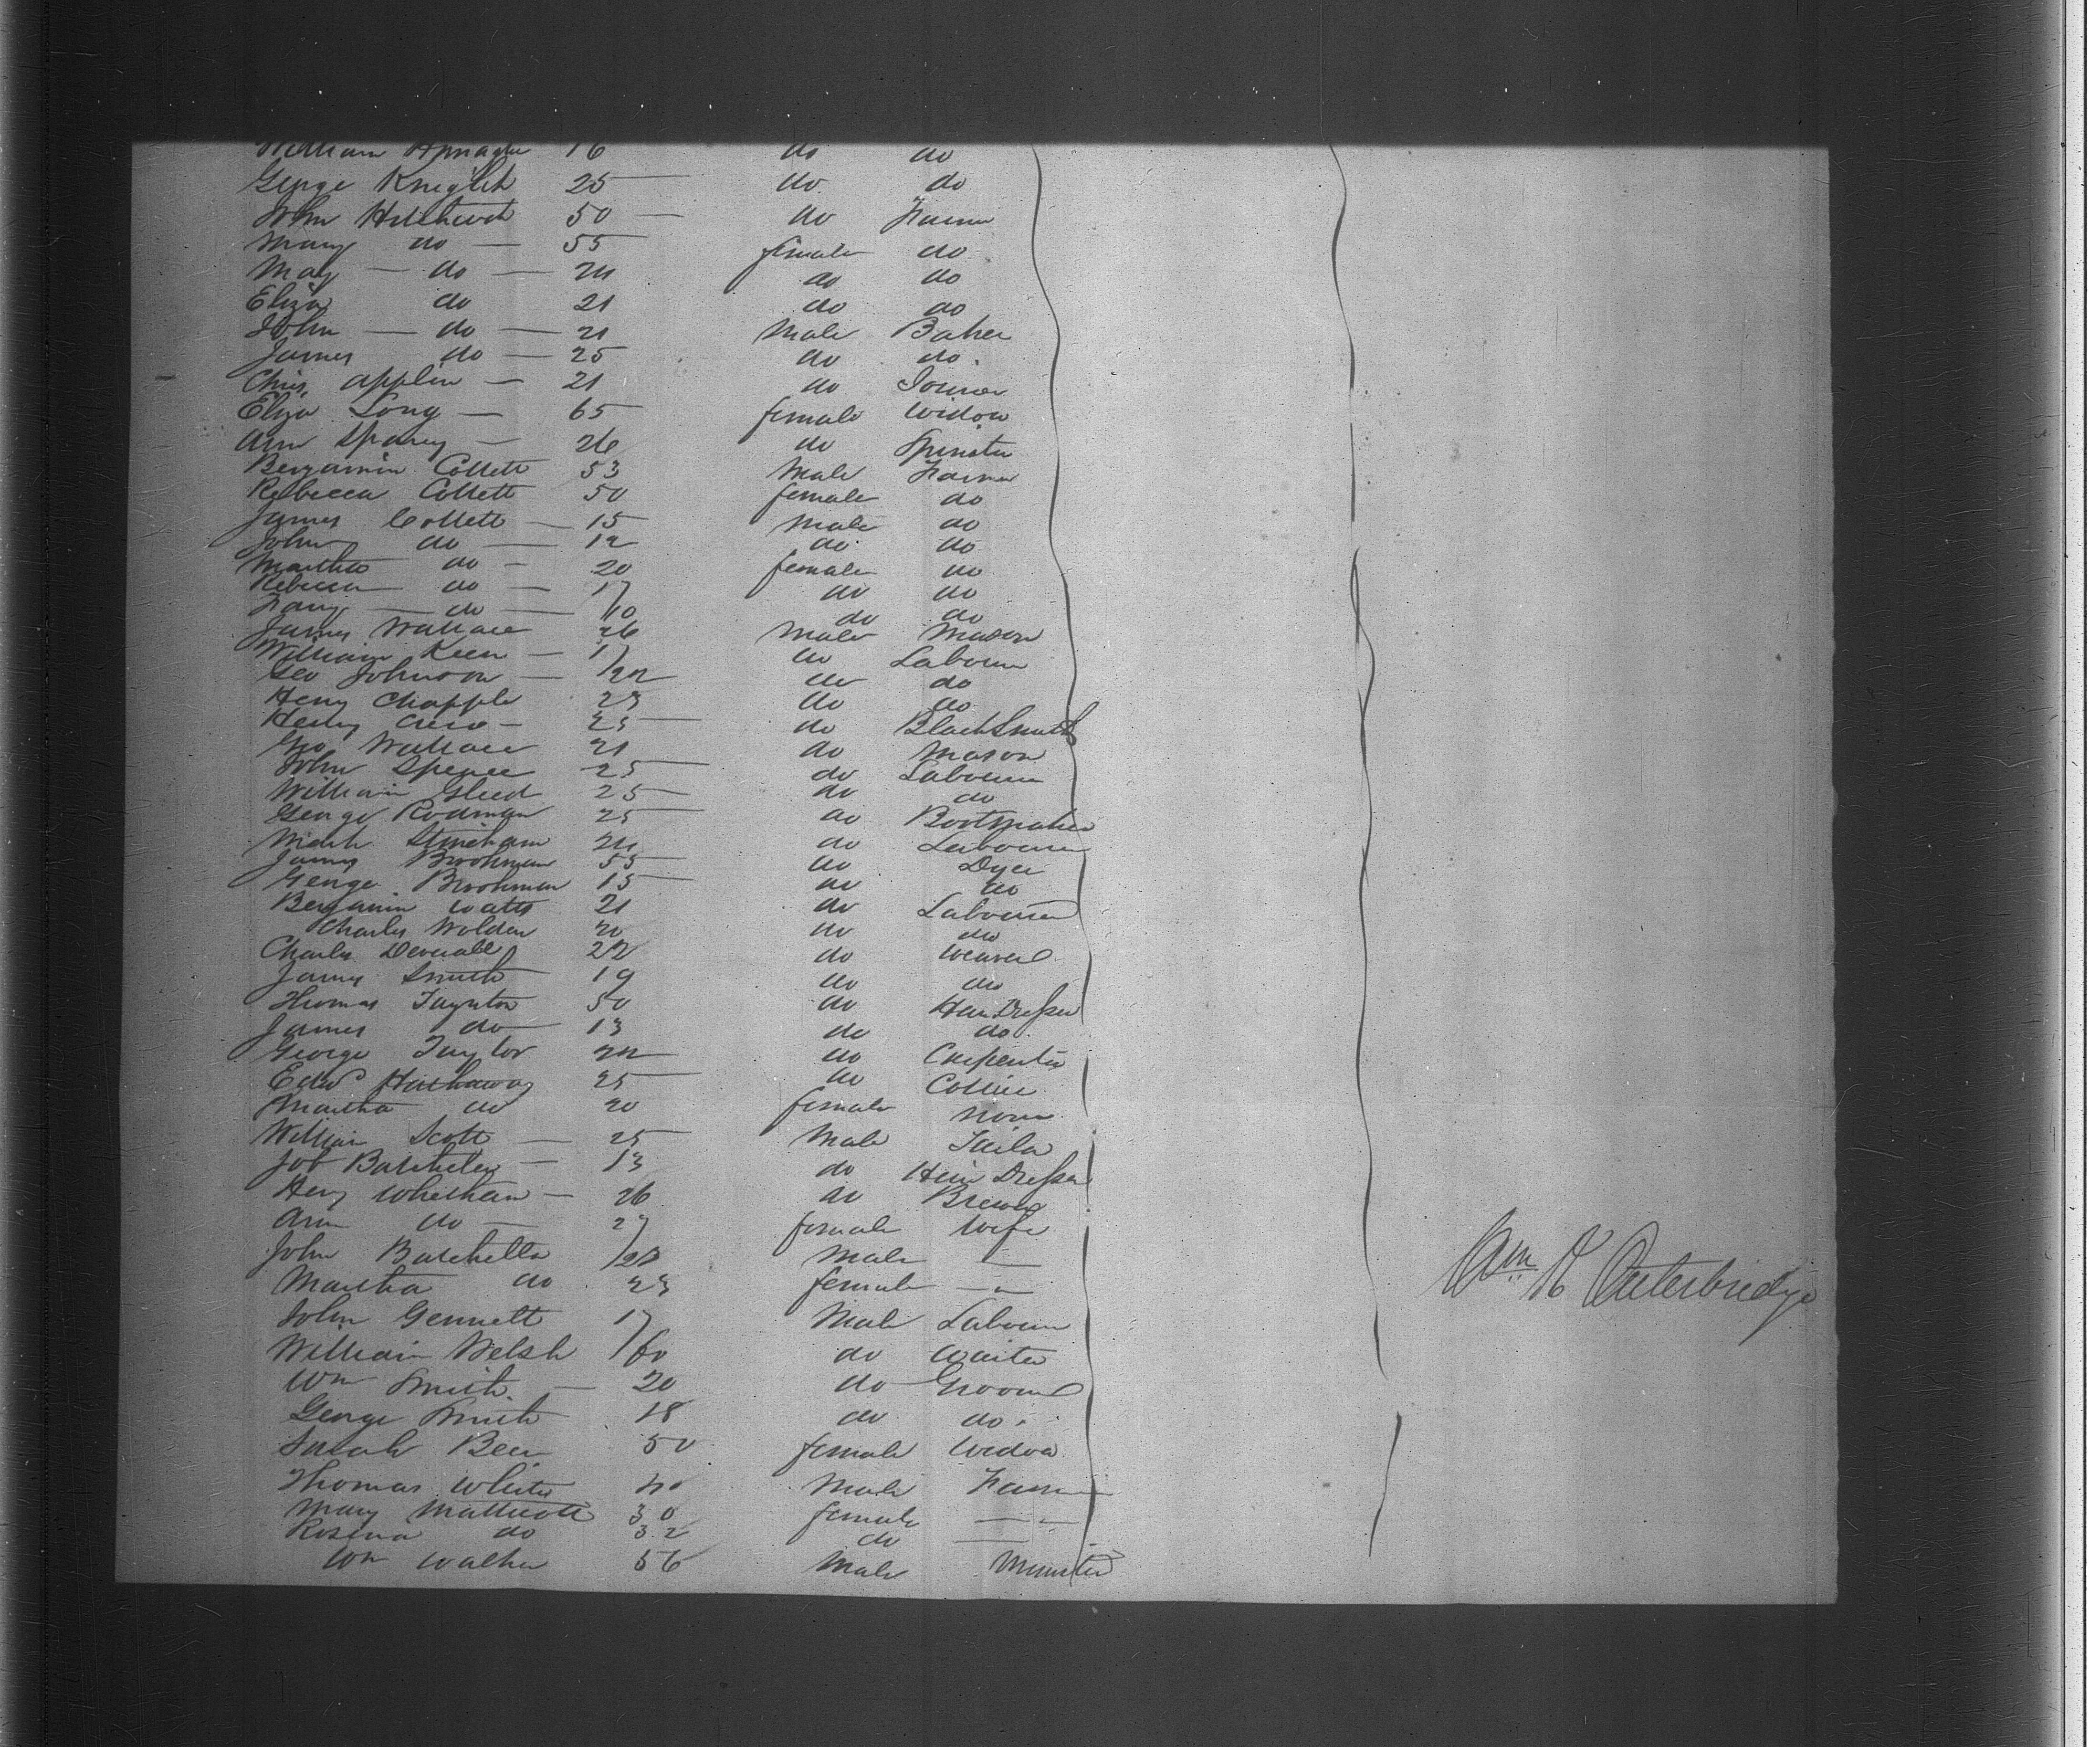 William 16 do do
George Knight 25 do do
John 50 do Farmer
Mary do 55 female do
May do 24 do do
Eliza do 21 do do
John do 21 Male Baker
James do 25 do do
Chris Applin 21 do Joiner
Eliza Long 65 female Widow
Ann Sparey 26 do Spinster
Benjamin Collett 53 Male Farmer
Rebecca Collett 50 female do
James Collett 15 Male do
John do 12 do do
Martha do 20 female do
Rebecca do 17 do do
do 10 do do
James Wallace 26 Male Mason
William Keen 17 do Labourer
Geo Johnson 22 do do
Henry Chapple 23 do do
Henry 25 do BlackSmith
Geo Wallace 21 do Mason
John Spence 25 do Labourer
William Gleed 25 do do
George Rodman 25 do Bootmaker
Stincham 24 do Labourer
James Brookman 55 do Dyer
George Brookman 15 do do
Benjamin Watts 21 do Labourer
Charles Wolden 20 do do
Charles Deverall 22 do Weaver
James Smith 19 do do
Thomas Taynton 50 do Hair Dresser
James do 13 do do
George Taylor 22 do Carpenter
Edwd Hathaway 25 do Collier
Martha do 20 female None
William Scott 25 Male Tailor
Job Batcheler 13 do Hair Dresser
Heny Whethan 26 do Brewer
Ann do 27 female Wife
John Batchellor 23 Male
Martha do 23 female
John Gennett 17 Male Labourer
William Welsh 60 do Waiter
Wm Smith 20 do Groom
George Smith 18 do do
Sarah Beer 50 female Widow
Thomas White 40 Male Farmer
Mary 30 female
Rosina do 32 do
Wm Walker 56 Male Minister
Wm R Outerbridge